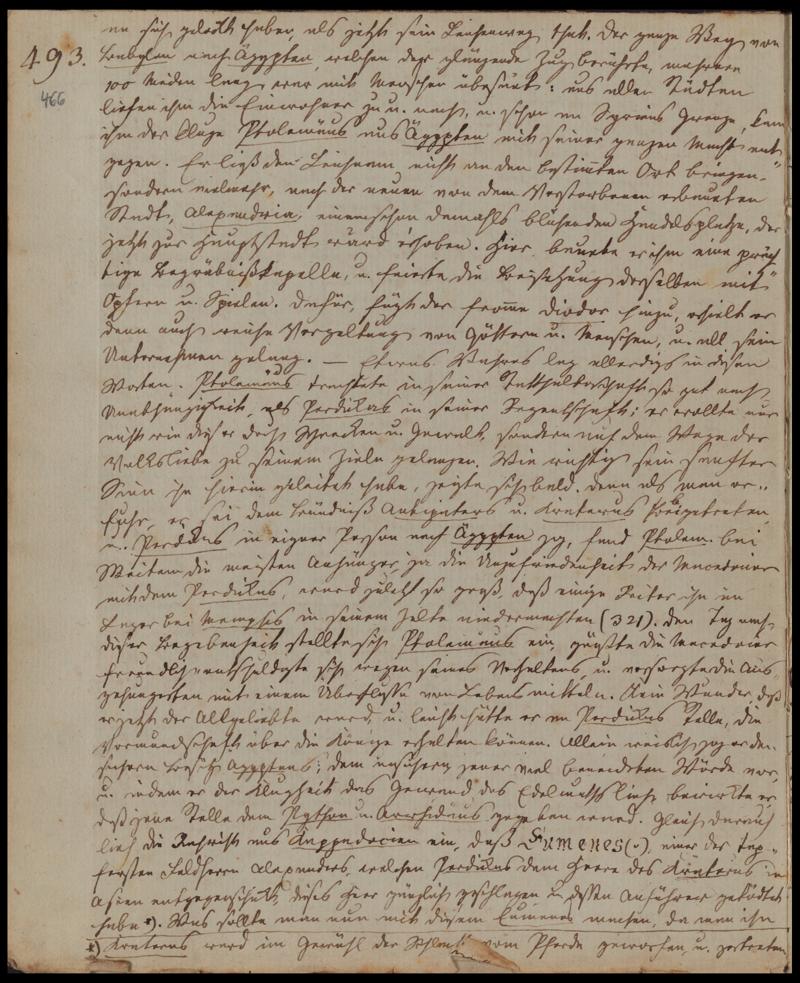 493.
466
an sich gelockt haben, als jetzt sein Leichenweg that. Der ganze Weg von
Babylon nach Ägypten, welchen der glänzende Zug berührte, mehrere
100 Meilen lang, war mit Menschen übersäet: aus allen Städten
liefen ihm die Einwohner zu u. nach, u. schon an Syriens Grenze, kam
ihm der kluge Ptolemäus aus Ägypten mit seiner ganzen Macht ent
gegen. Er ließ den Leichnam nicht an den bestimten Ort bringen,
sondern vielmehr, nach der neuen von dem Verstorbenen erbauten
Stadt, Alexandria, einem schon damahls blühenden Handelsplatze, der
jetzt zur Hauptstadt ward erhoben. Hier baute er ihm eine präch
tige Begräbnißkapelle, u. feierte die Beisetzung desselben mit
Opfern u. Spielen. Dafür, fügt der fromme Diodor hinzu, erhielt er
denn auch reiche Vergeltung von Göttern u. Menschen, u. all sein
Unternehmen gelang. — Etwas Wahres lag allerdigs in diesen
Worten. Ptolemäus trachtete in seiner Statthalterschaft so gut nach
Unabhängigkeit, als Perdikas in seiner Regentschaft; er wollte nur
nicht wie dieser durch Schrecken u. Gewalt, sondern auf dem Wege der
Volksliebe zu seinem Ziele gelangen. Wie richtig sein sanfter
Sinn ihn hierin geleitet habe, zeigte sich bald. Denn als man er-
fuhr, er sei dem Bündniß Antipaters u. Kraterus beigetreten,
u. Perdikas in eigner Person nach Ägypten zog, fand Ptolem. bei
Weitem die meisten Anhänger, ja die Unzufriedenheit der Macedonier
mit dem Perdikas, ward zuletzt so groß, daß einige Reiter ihn im
Lager bei Memphis in seinem Zelte niedermachten (321). Den Tag nach
dieser Begebenheit stellte sich Ptolemäus ein, grüßte die Macedonier
freundlich, entschuldigte sich wegen seines Verhaltens, u. versorgte die Aus
gehungerten mit einem Überflusse von Lebensmitteln. Kein Wunder, daß
er jetzt der Allgeliebte ward, u. leicht hätte er an Perdikas Stelle, die
Vormundschaft über die Könige erhalten können. Allein weislich zog er den
sichern Besitz Ägyptens, dem unsichern jener viel beneideten Würde vor,
u. indem er der Klugheit das Gewand des Edelmuths lieh, bewirkte er,
daß jene Stelle dem Python u. Arrhidäus gegeben ward. Gleich darauf
lief die Nachricht aus Kappadocien ein, daß Eumenes, einer der tap-
fersten Feldherrn Alexanders, welchen Perdikas dem Heere des Kraterus in
Asien entgegenschickt, dieses Heer gänzlich geschlagen u. dessen Anführer getödtet
habe *). Was sollte man nun mit diesem Eumenes machen, da man ihn
*) Kraterus ward im Gewühl der Schlacht vom Pferde geworfen, u. zertreten